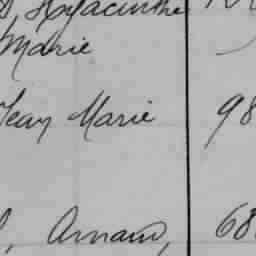 Hyacinthe
Marie
Jean Marie 98
Arnaud, 68